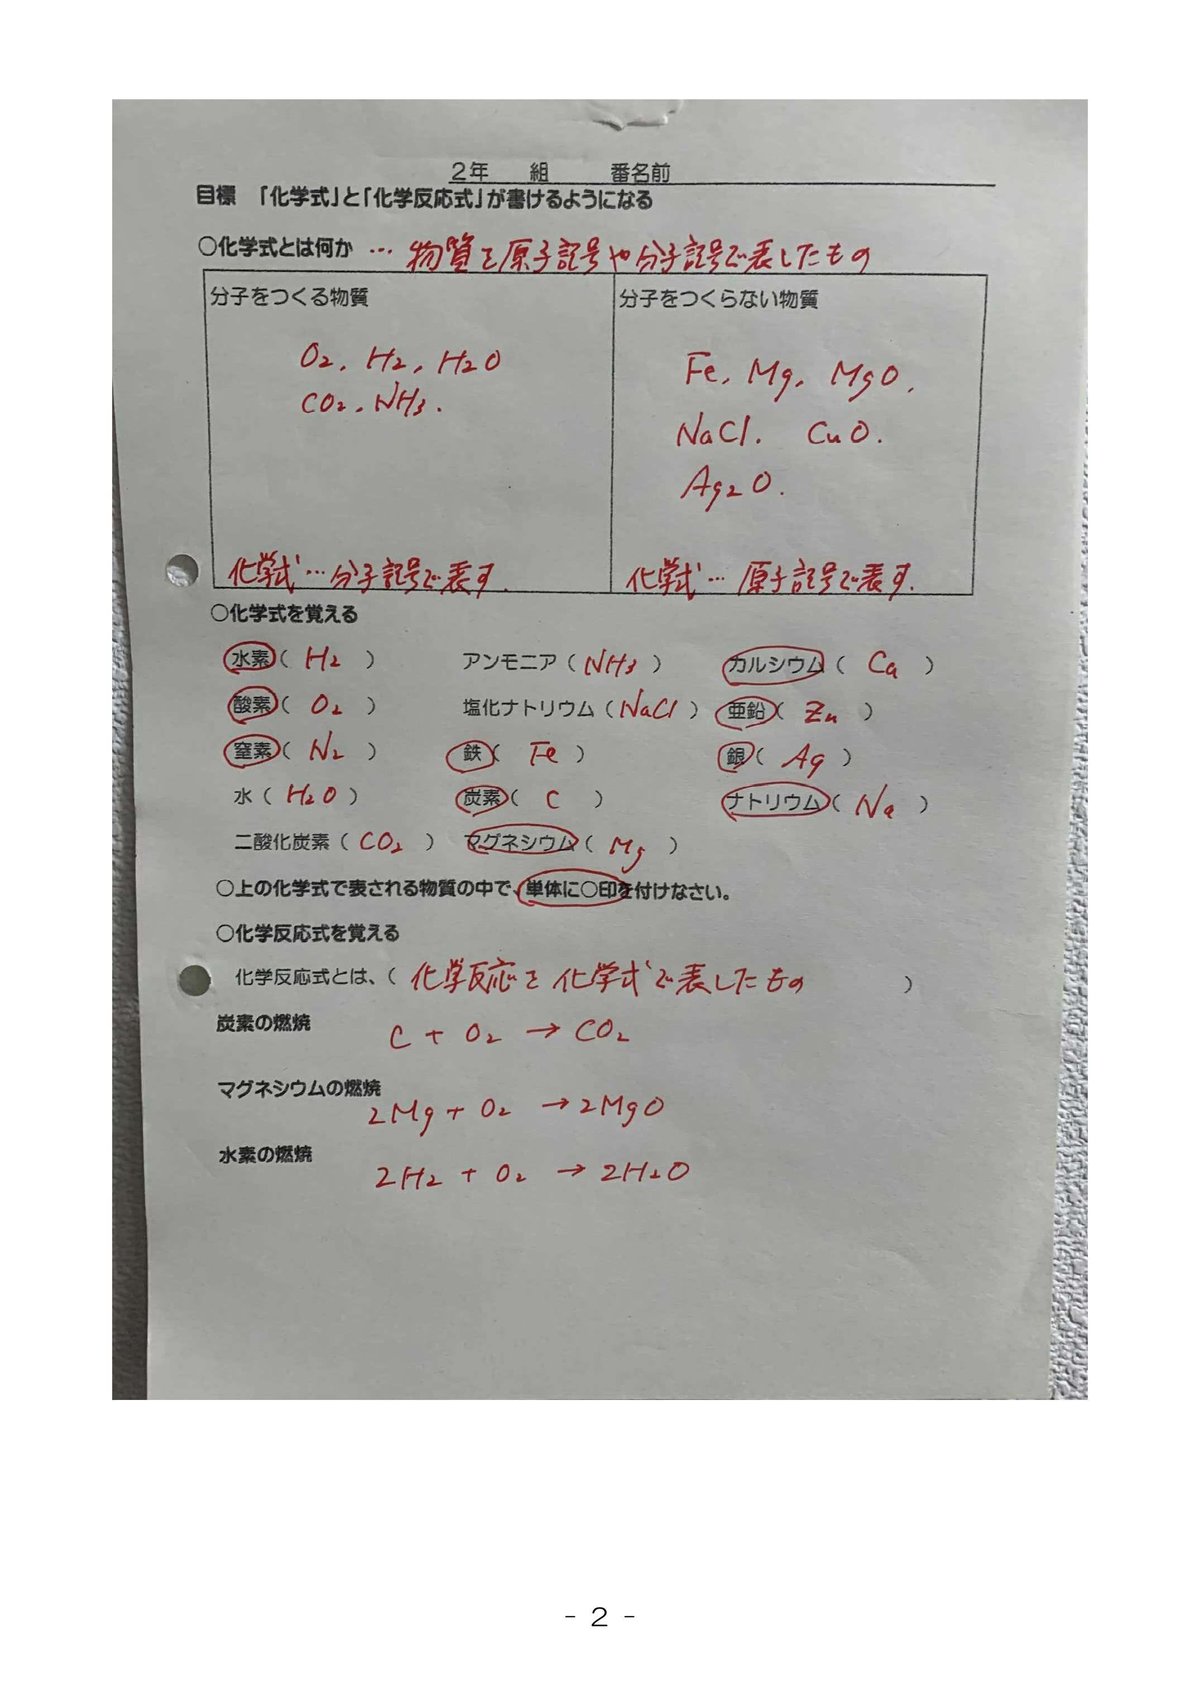 2年　組　番名前
目標　「化学式」と「化学反応式」が書けるようになる
○化学式とは何か … 物質を原子記号や分子記号で表したもの
分子をつくる物質　分子をつくらない物質
O₂, H₂, H₂O
CO₂, NH₃.
Fe, Mg, MgO,
NaCl. CuO.
Ag₂O.
化学式…分子記号で表す.　化学式…原子記号で表す.
○化学式を覚える
水素（ H₂ ）　アンモニア（ NH₃ ）　カルシウム（ Ca ）
酸素（ O₂ ）　塩化ナトリウム（ NaCl ）　亜鉛（ Zn ）
窒素（ N₂ ）　鉄（ Fe ）　銀（ Ag ）
水（ H₂O ）　炭素（ C ）　ナトリウム（ Na ）
二酸化炭素（ CO₂ ）　マグネシウム（ Mg ）
○上の化学式で表される物質の中で、単体に○印を付けなさい。
○化学反応式を覚える
化学反応式とは、（ 化学反応を化学式で表したもの ）
炭素の燃焼　C + O₂ → CO₂
マグネシウムの燃焼
2Mg + O₂ → 2MgO
水素の燃焼
2H₂ + O₂ → 2H₂O
- 2 -